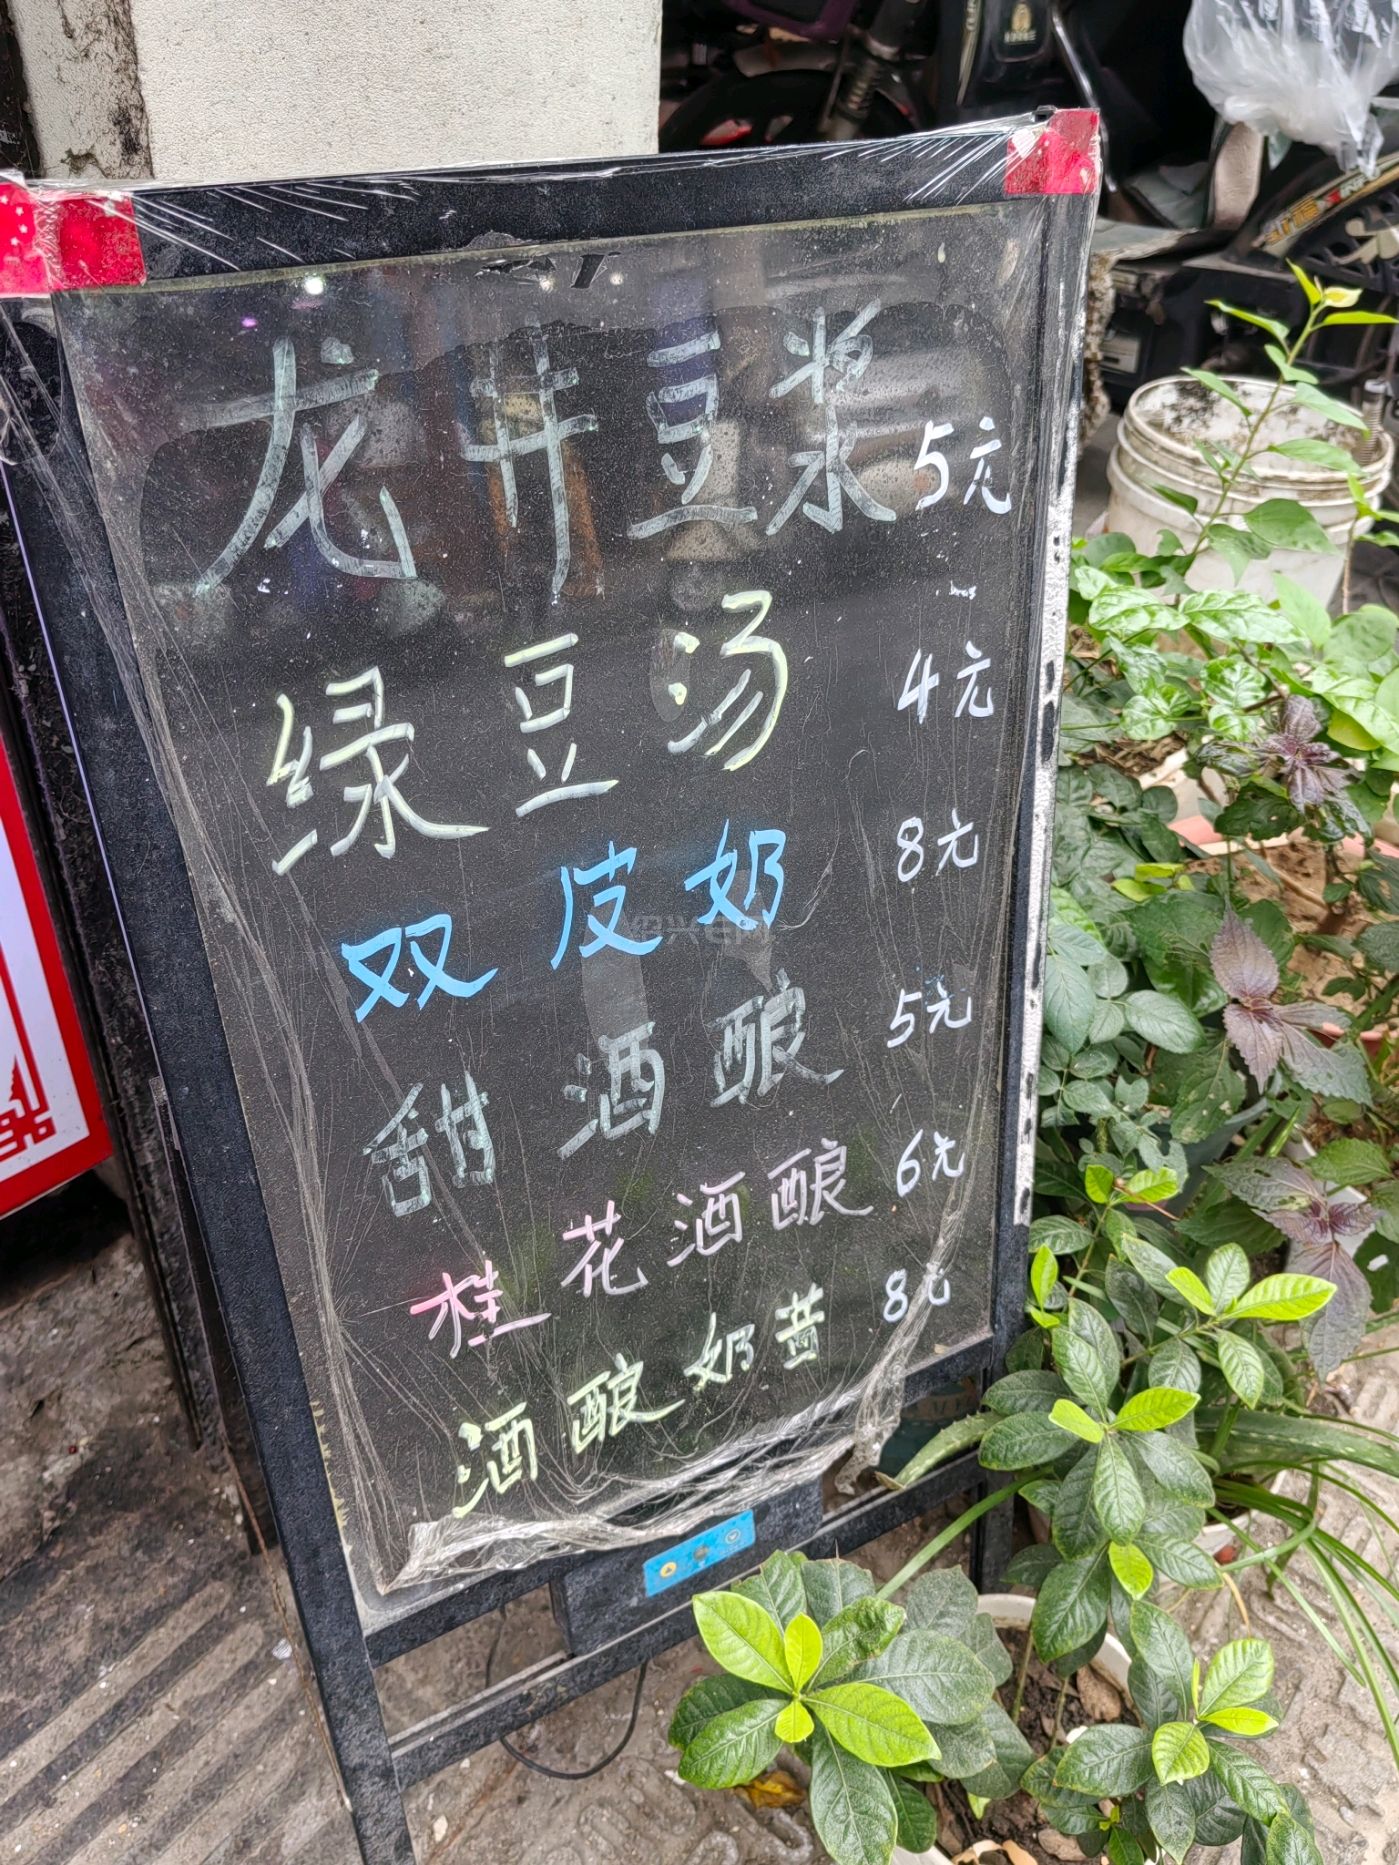 龙井豆浆 5元
绿豆汤 4元
双皮奶 8元
甜酒酿 5元
桂花酒酿 6元
酒酿奶昔 8元
绍兴E网